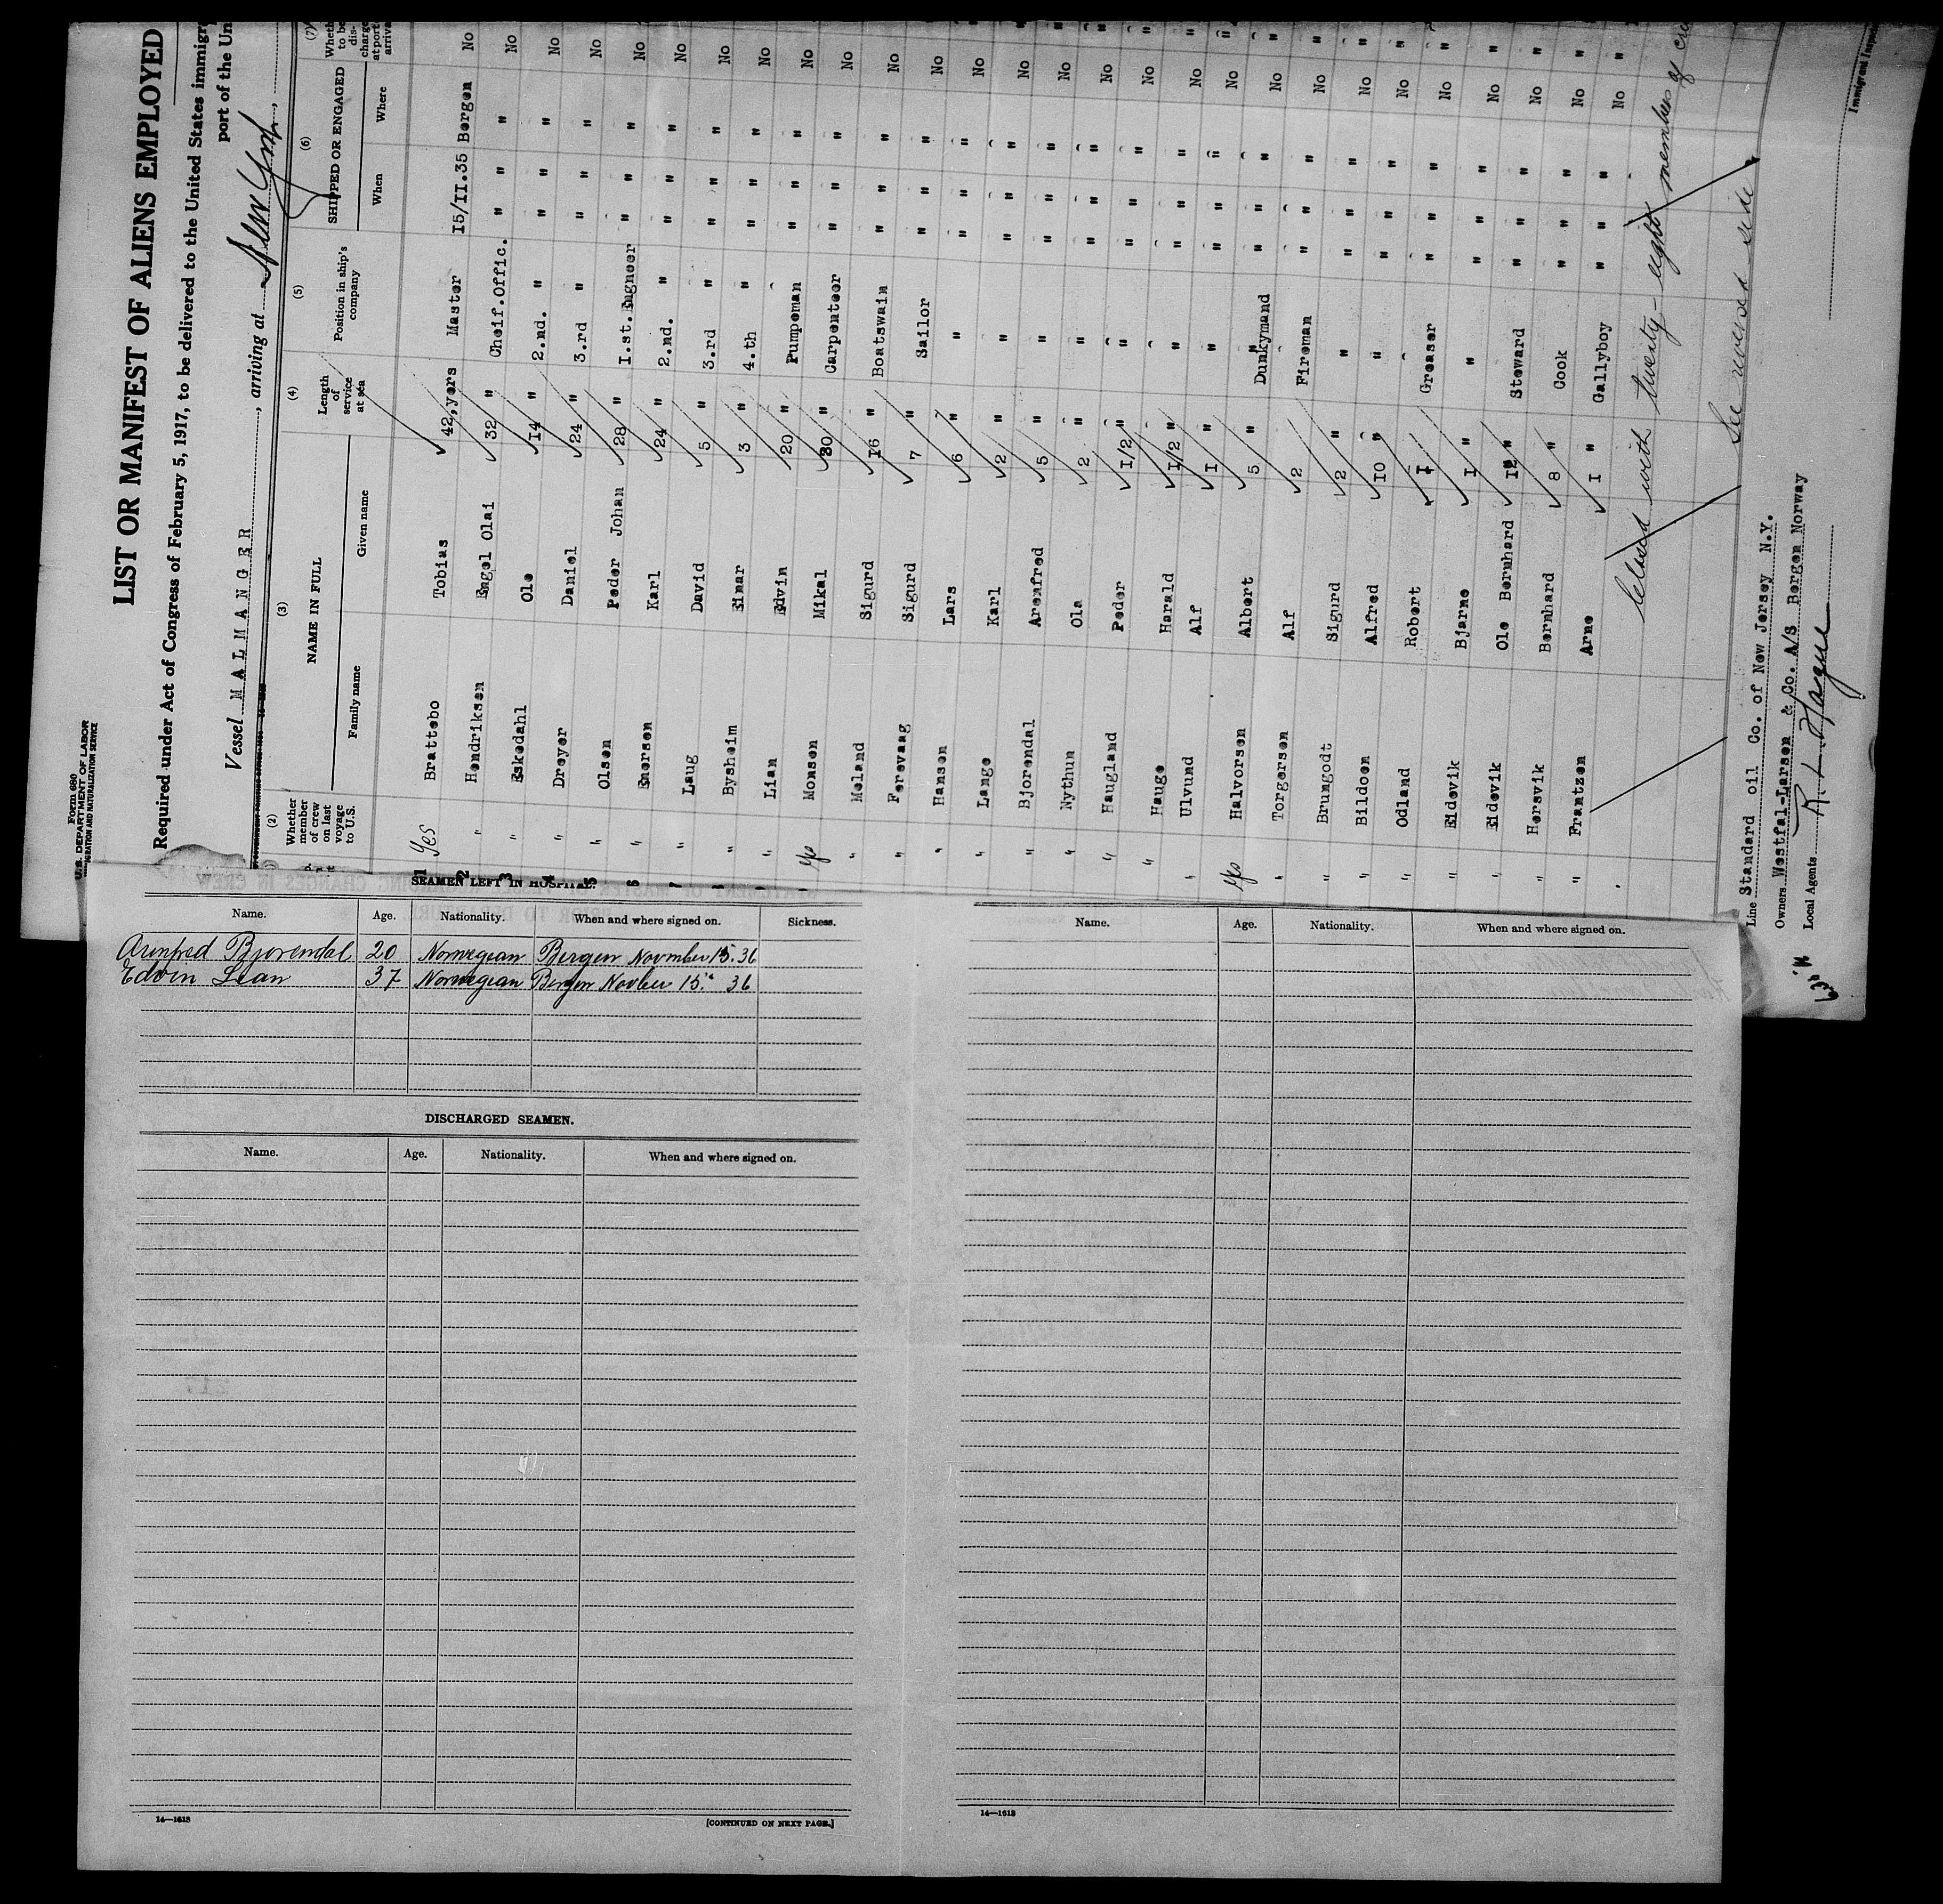 Form 680
U.S. DEPARTMENT OF LABOR
IMMIGRATION AND NATURALIZATION SERVICE
LIST OR MANIFEST OF ALIENS EMPLOYED
Required under Act of Congress of February 5, 1917, to be delivered to the United States immigr
port of the Un
Vessel MALMANGER, arriving at New York,
(2) (3) (4) (5) (6) (7)
Whether member of crew on last voyage to U.S. NAME IN FULL Family name Given name Length of service at sea Position in ship's company SHIPPED OR ENGAGED When Where Wheth to be dis-charge at port arrive
1 Yes Brattebo Tobias 42,yers Master I5/II.35 Bergen No
2 " Hendriksen Engel Olai 32 " Cheif.Offic. " " " No
3 " Eskedahl Ole I4 " 2.nd. " " " " No
4 " Dreyer Daniel 24 " 3.rd " " " " No
5 " Olsen Peder Johan 28 " I.st.Engneer " " " No
6 " Enersen Karl 24 " 2.nd. " " " " No
" Laug David 5 " 3.rd " " " " No
" Bysheim Einar 3 " 4.th " " " " No
" Lian Edvin 20 " Pumpeman " " " No
Yes Monsen Mikal 30 " Carpenteer " " " No
" Meland Sigurd I6 " Boatswain " " " No
" Ferevaag Sigurd 7 " Sailor " " " No
" Hansen Lars 6 " " " " " No
" Lange Karl 2 " " " " " No
" Bjorendal Arenfred 5 " " " " " No
" Nythun Ola 2 " " " " " No
" Haugland Peder I/2 " " " " " No
" Hauge Harald I/2 " " " " " No
" Ulvund Alf I " " " " " No
Yes Halvorsen Albert 5 " Dunkymand " " " No
" Torgersen Alf 2 Fireman " " " No
" Brungodt Sigurd 2 " " " " " No
" Bildoen Alfred IO " " " " " No
" Odland Robert I Greaser " " " No
" Eidevik Bjarne I " " " " " No
" Eidevik Ole Bernhard I2 " Steward " " " No
" Hersvik Bernhard 8 " Cook " " " No
" Frantzen Arne I " Gallyboy " " " No
Closed with twenty-eight members of cre
See reverse side
Line Standard oil Co. of New Jersey N.Y.
Owners Westfal-Larsen & Co. A/S Bergen Norway
Local Agents
Immigrant Inspe
SEAMEN LEFT IN HOSPITAL.
Name. Age. Nationality. When and where signed on. Sickness.
Arenfred Bjorendal 20 Norwegian Bergen Novmber 15. 36
Edvin Lian 37 Norwegian Bergen Novber 15." 36
DISCHARGED SEAMEN.
Name. Age. Nationality. When and where signed on.
14—1618
[CONTINUED ON NEXT PAGE.]
Name. Age. Nationality. When and where signed on.
14—1618